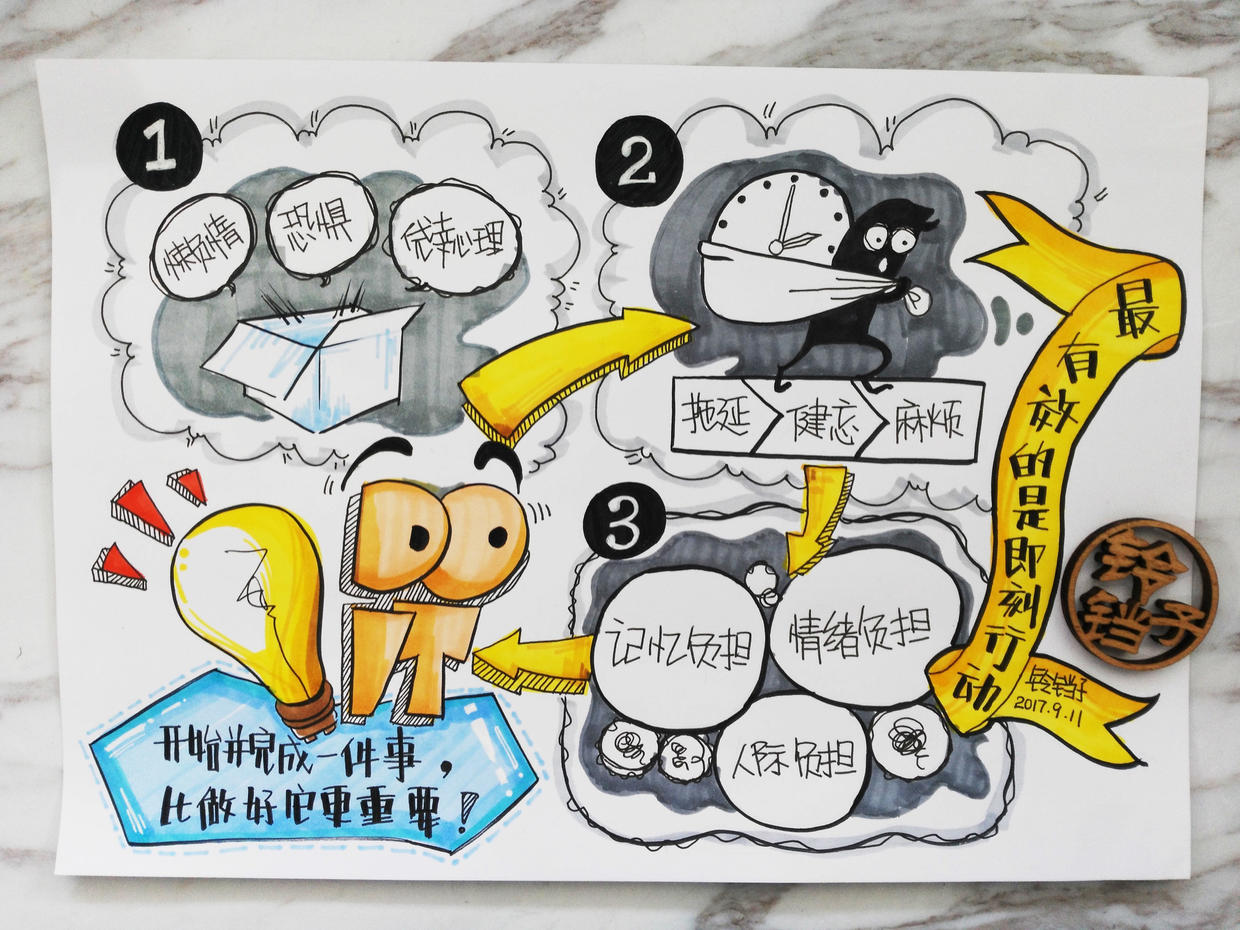 1
恐惧
侥幸心理
2
拖延
健忘
麻烦
3
记忆负担
情绪负担
人际负担
DO
IT
开始并完成一件事，
比做好它更重要！
最有效的是即刻行动
铃铛子
2017.9.11
铃
铛子